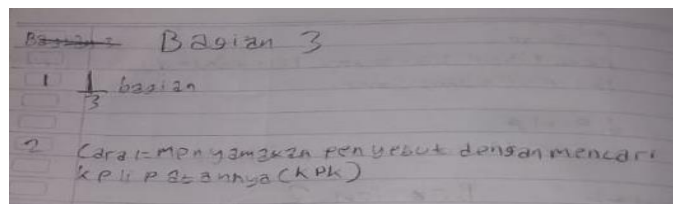 Bagian 3
1 1/3 bagian
2 Cara 1=menyamakan penyebut dengan mencari
kelipatannya (KPK)